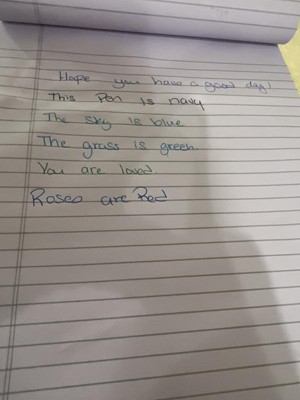 Hope you have a good day!
This Pen is navy
The sky is blue
The grass is green.
You are loved.
Roses are Red